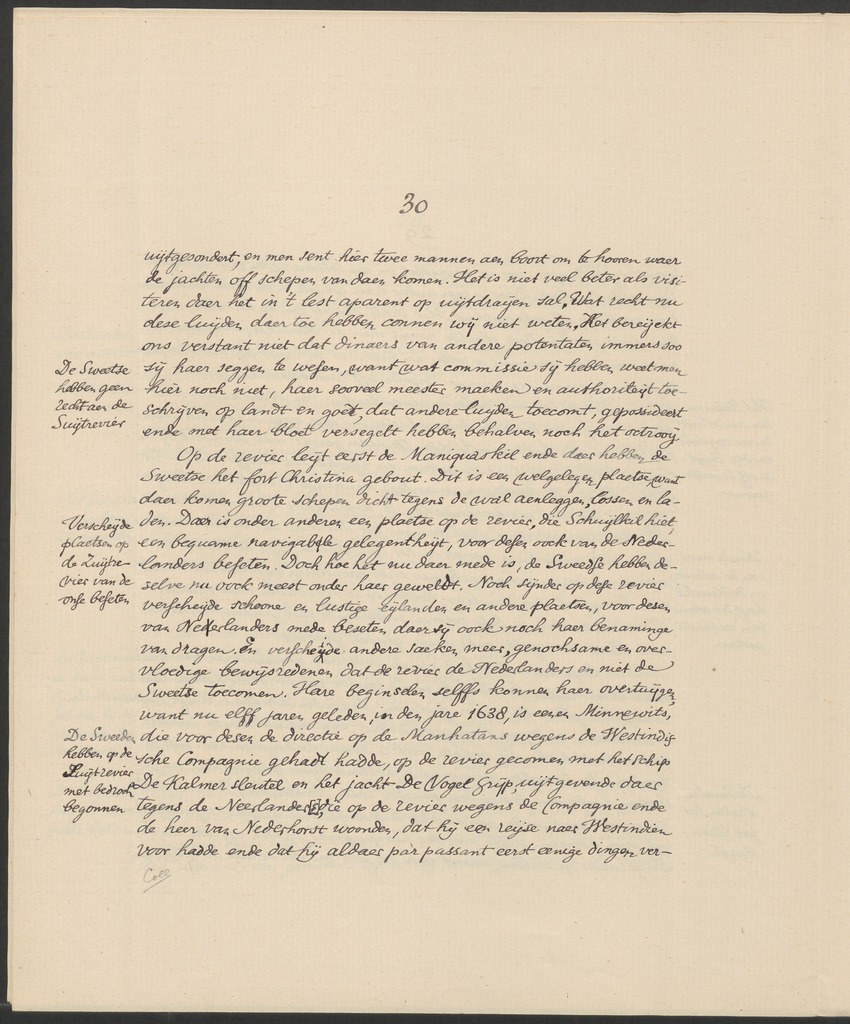 30
uijtgesondert, en men sent hier twee mannen aen boort om te hooren waer
de jachten off schepen van daen komen. Het is niet veel beter als visi-
teren daer het in 't lest aparent op uijtdraijen sal. Wat recht nu
dese luijden daer toe hebben connen wij niet weten. Het bereijckt
ons verstant niet dat dinaers van andere potentaten immers soo
sij haer seggen te wesen, want wat commissie sij hebben weet men
hier noch niet, haer sooveel meester maeken en authoriteijt toe-
schrijven op landt en goet, dat andere luijden toecomt, gepossideert
ende met haer bloet versegelt hebben behalven noch het octrooij.
De Sweetse
hebben geen
recht aen de
Suijtrevier
Op de revier leijt eerst de Maniquaskil ende daer hebben de
Sweetse het fort Christina gebout. Dit is een welgelegen plaetse, want
daer komen groote schepen dicht tegens de wal aenleggen, lossen en la-
den. Daer is onder anderen een plaetse op de revier, die Schuijlkil hiet,
een bequame navigable gelegentheijt, voor desen oock van de Neder-
landers beseten. Doch hoe het nu daer mede is, de Sweedse hebben de-
selve nu oock meest onder haer gewelt. Noch sijnder op dese revier
verscheijde schoone en lustige eijlanden en andere plaetsen, voor desen
van Nederlanders mede beseten daer sij oock noch haer benaminge
van dragen. En verscheijde andere saeken meer, genochsame en over-
vloedige bewijsredenen dat de revier de Nederlanders en niet de
Sweetse toecomen. Hare beginselen selffs konnen haer overtuijgen,
want nu elff jaren geleden, in den jare 1638, is eenen Minnewits,
die voor desen de directie op de Manhatans wegens de Westindi-
sche Compagnie gehadt hadde, op de revier gecomen met het schip
De Kalmer sleutel en het jacht De Vogel Grijp, uijtgevende daer
tegens de Neerlanders, die op de revier wegens de Compagnie ende
de heer van Nederhorst woonden, dat hij een reijse naer Westindien
voor hadde ende dat hij aldaer par passant eerst eenige dingen ver-
Verscheijde
plaetsen op
de Zuijtre-
vier van de
onse beseten
De Sweeden
hebben op de
Suijtrevier
met bedroch
begonnen